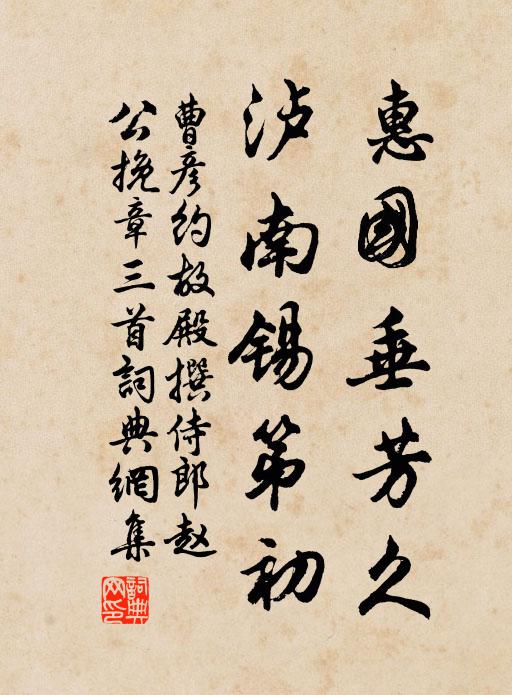 惠國垂芳久
泸南錫第初
曹彦约故殿撰侍郎赵
公挽章三首詞典網集
詞典
网印